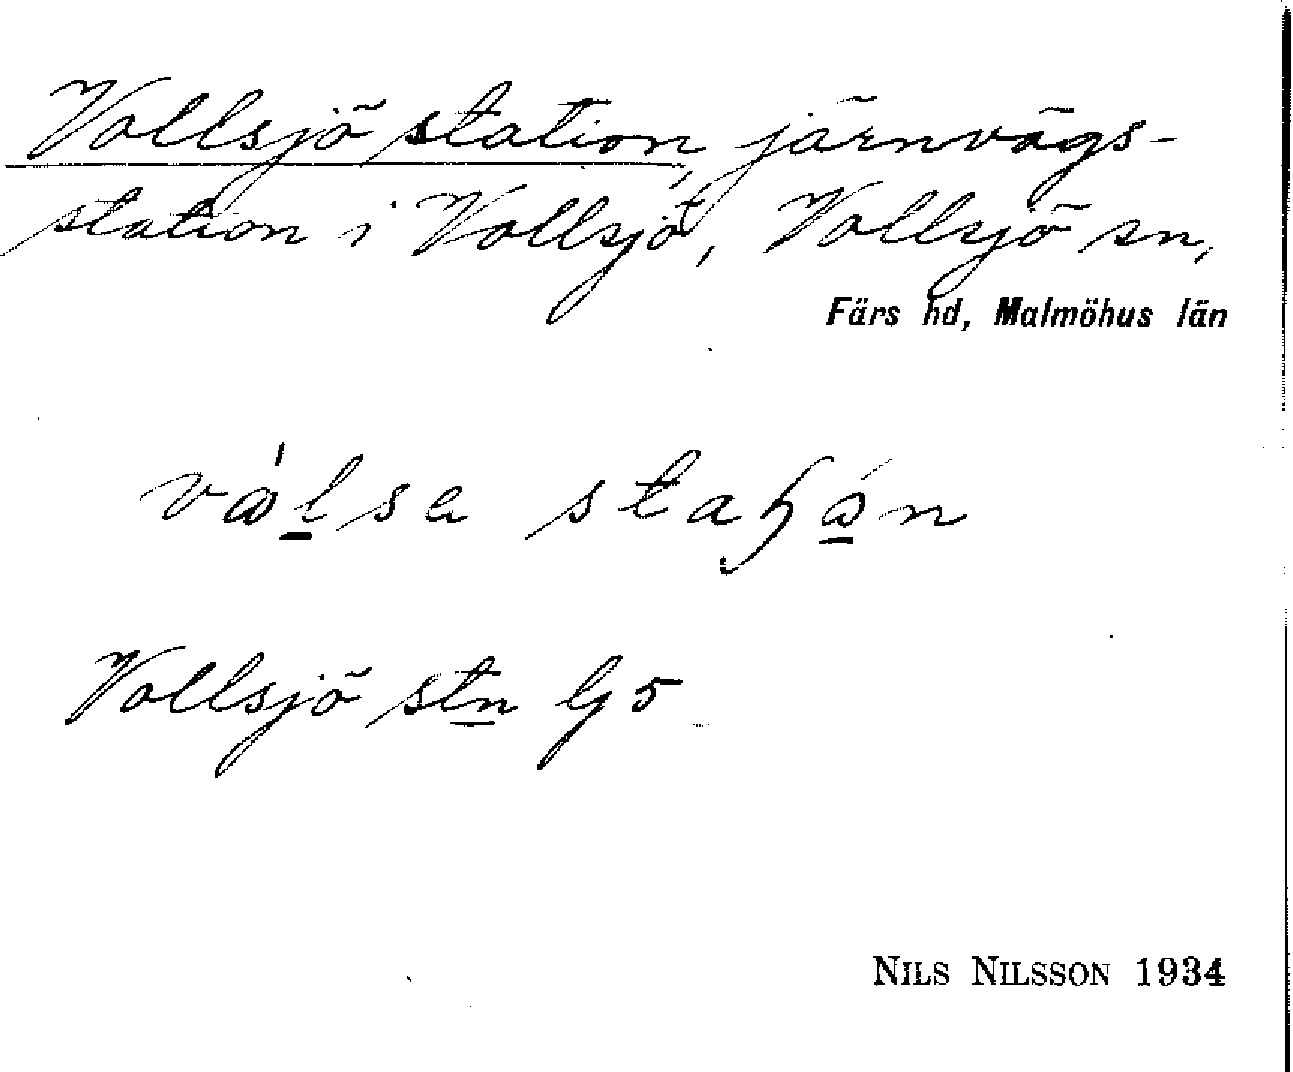 Vollsjö station, järnvägs-
station i Vollsjöt, Vollsjö sn,
Färs hd, Malmöhus län
Vollsjö stn G5
NILS NILSSON 1934